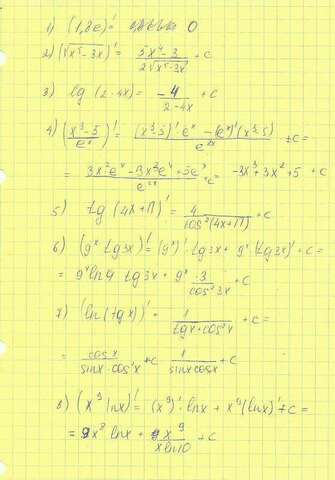 1) (1,8e)' = 0
2) (√x⁵-3x)' = 5x⁴-3 / 2√x⁵-3x + c
3) lg (2-4x) = -4 / 2-4x + c
4) (x³-5 / eˣ)' = (x³-5)' eˣ - (eˣ)' (x³-5) / e²ˣ + c =
5) tg (4x+π)' = 4 / cos²(4x+π) + c
6) (9ˣ tg3x)' = (9ˣ)' · tg3x + 9ˣ (tg3x)' + c =
= 9ˣ ln9 tg3x + 9ˣ · 3 / cos²3x + c
7) (ln(tgx))' = 1 / tgx · cos²x + c =
= cosx / sinx · cos²x + c 1 / sinx cosx + c
8) (x⁹ lnx)' = (x⁹)' · lnx + x⁹ (lnx)' + c =
= 9x⁸ lnx + x⁹ / x ln10 + c